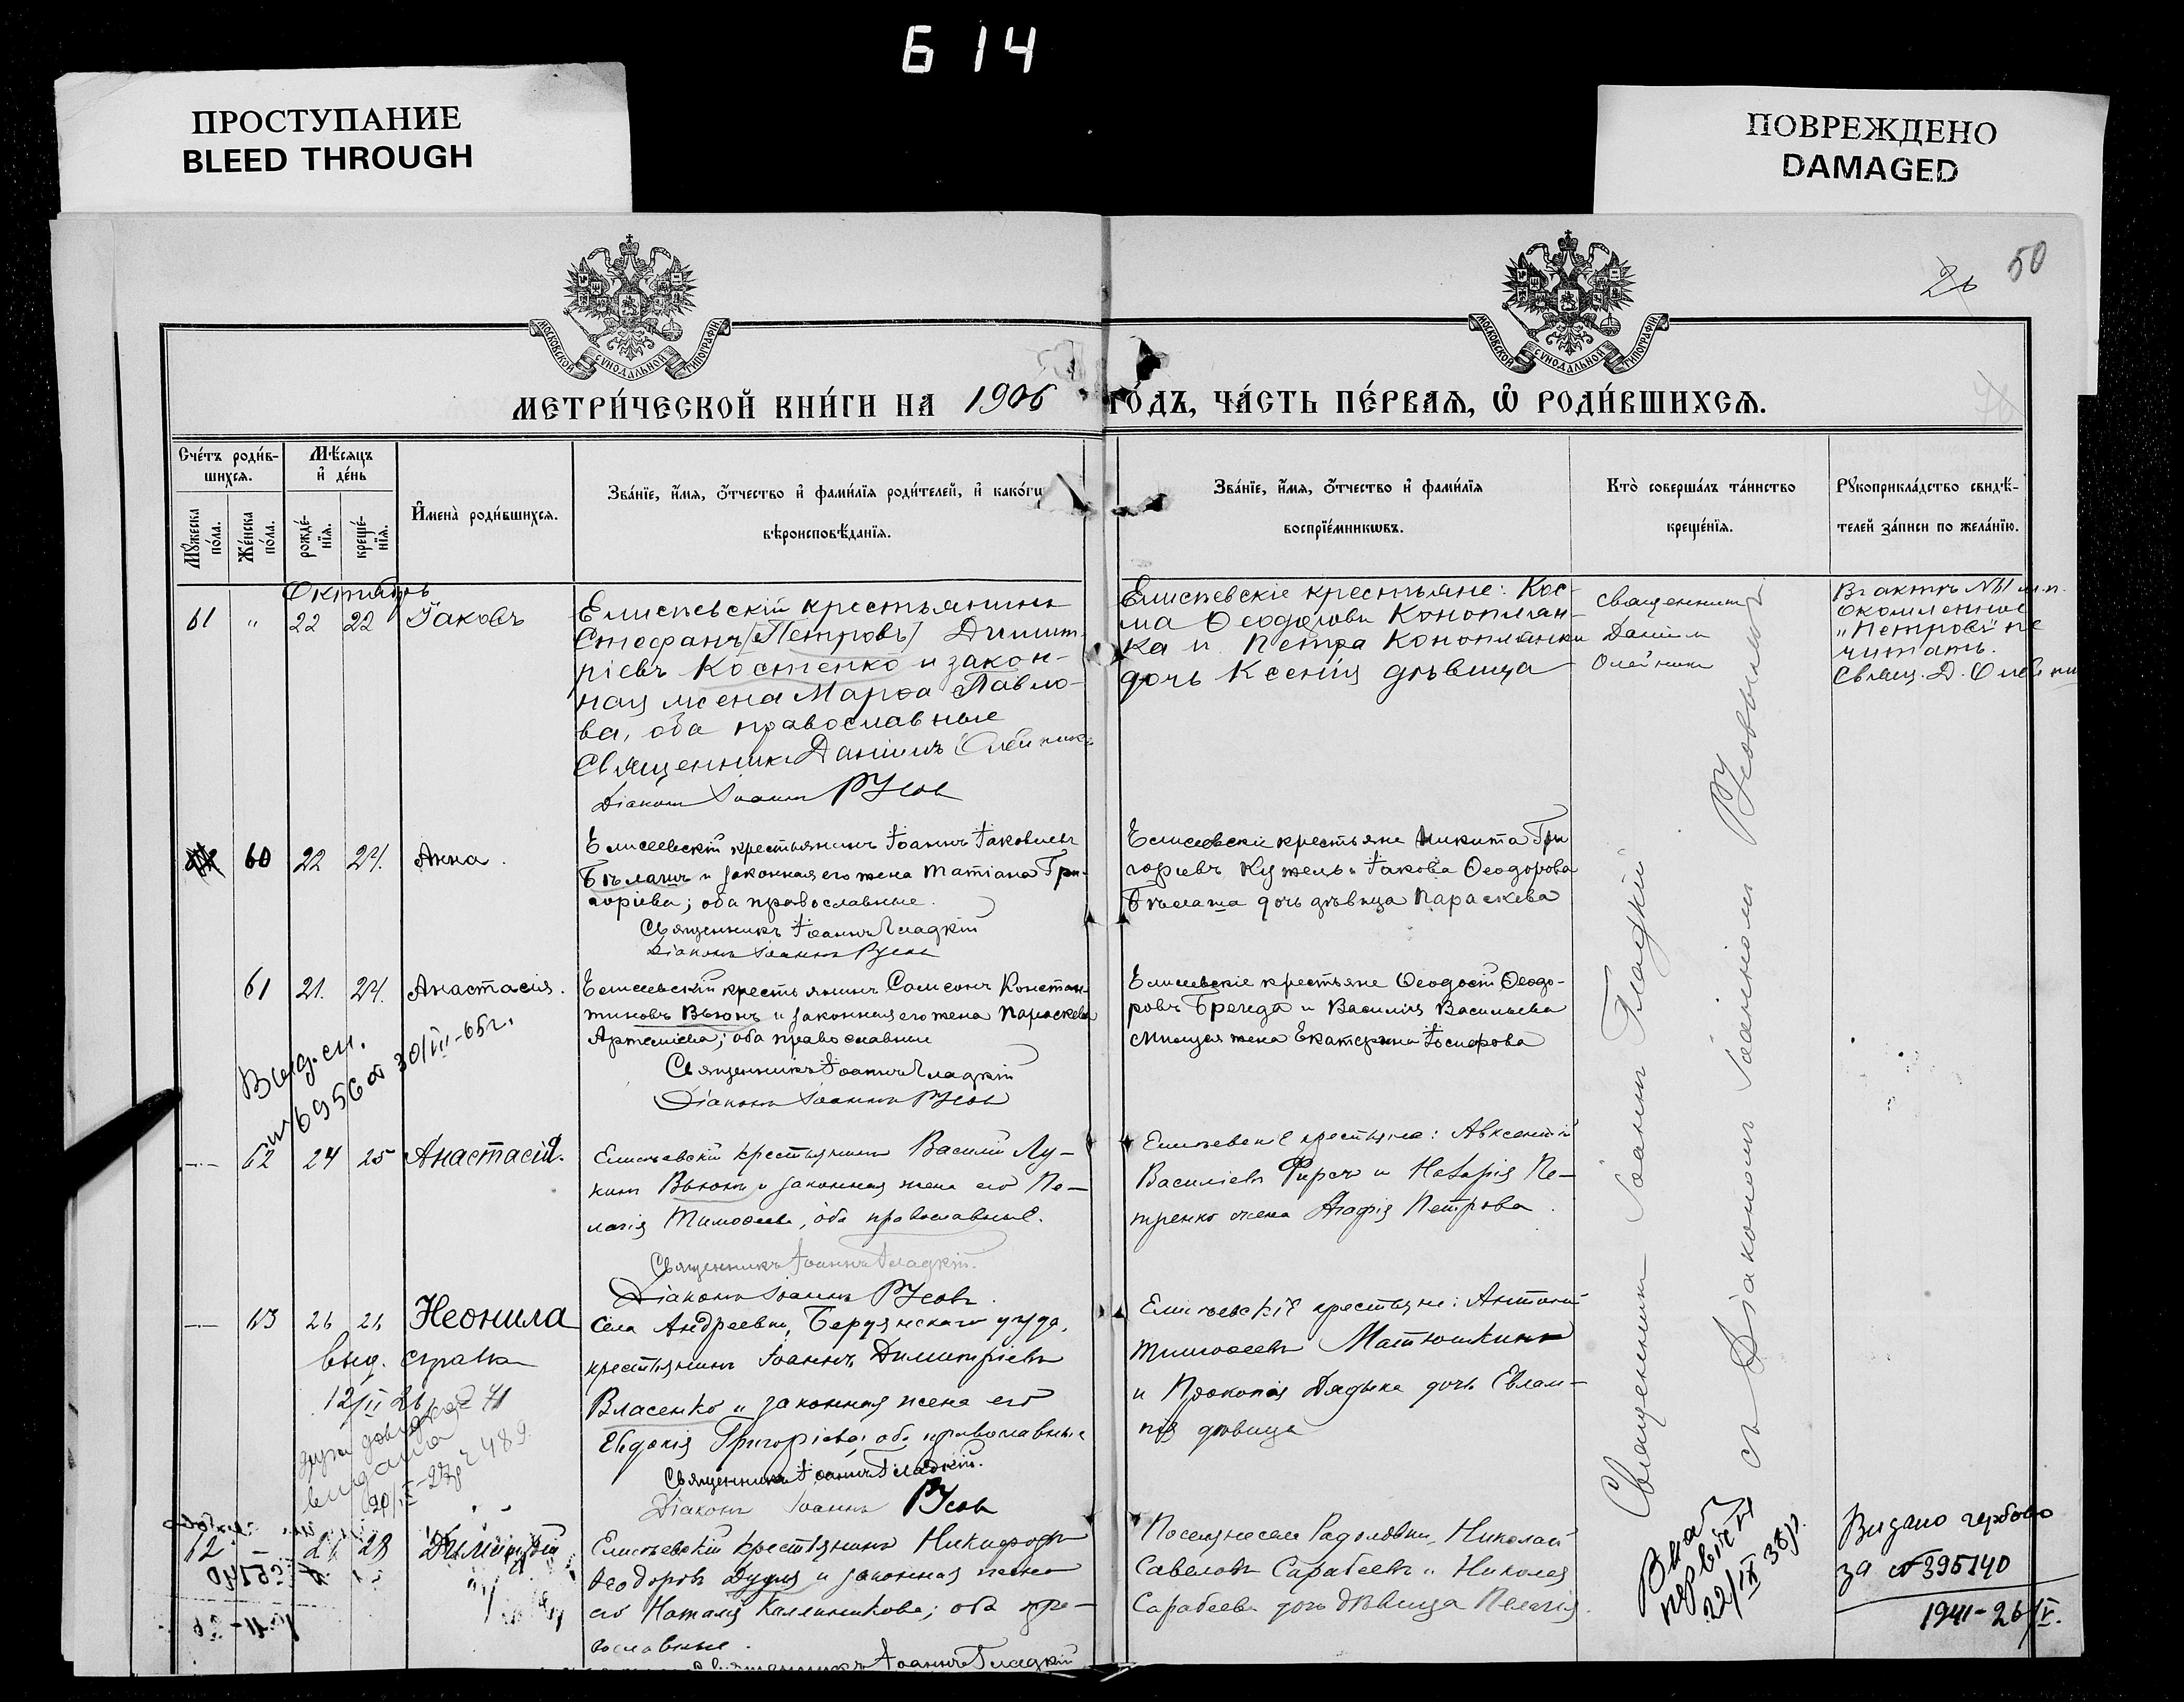 Б 14
ПРОСТУПАНИЕ
BLEED THROUGH
ПОВРЕЖДЕНО
DAMAGED
26 50
МОСКОВСКОЙ СѴНОДАЛЬНОЙ ТИПОГРАФІИ
МОСКОВСКОЙ СѴНОДАЛЬНОЙ ТИПОГРАФІИ
МЕТРИ́ЧЕСКОЙ КНИ́ГИ НА 1906 ГО́ДЪ, ЧА́СТЬ ПЕ́РВАѦ, Ѡ РОДИ́ВШИХСѦ.
Сче́тъ роди́в-
шихсѧ.
Мѣ́сѧцъ
и҆ де́нь
Мꙋ́жеска по́ла.
Же́нска по́ла.
рожде́-
нїѧ.
креще́-
нїѧ.
И҆мена̀ роди́вшихсѧ.
Зва́нїе, и҆́мѧ, ѻ҆́тчество и҆ фами́лїѧ роди́телей, и҆ како́гѡ
вѣроисповѣ́данїѧ.
Зва́нїе, и҆́мѧ, ѻ҆́тчество и҆ фами́лїѧ
воспрїе́мникѡвъ.
Кто̀ соверша́лъ та́инство
креще́нїѧ.
Рꙋкоприкла́дство свидѣ́-
телей за́писи по жела́нїю.
Октябрь
61 " 22 22 Іаковъ
Елисѣевскій крестьянинъ
Стефанъ [Петровъ] Димит-
ріевъ Костенко и закон-
ная жена Марѳа Павло-
ва, оба православные
Священникъ Даніилъ Олейникъ
Діаконъ Іоаннъ Русовъ
Елисѣевскіе крестьяне: Кос-
ма Ѳеодоровъ Коноплян-
ка и Петра Коноплянки
дочь Ксенія дѣвица
Священникъ
Даніилъ
Олейникъ
"Петровъ" не
читать.
Свящ. Д. Олейник
60 22 24. Анна.
Елисеевскій крестьянинъ Іоаннъ Іаковлевъ
Бѣлашъ и законная его жена Татіана Гри-
горіева; оба православные.
Священникъ Іоаннъ Гладкій
Діаконъ Іоаннъ Русовъ
Елисеевскіе крестьяне Никита Гри
горіевъ Кужель и Іакова Ѳеодорова
Бѣлаша дочь дѣвица Параскева
61 21. 24. Анастасія.
Елисеевскій крестьянинъ Самсонъ Констан-
тиновъ Вьюнъ и законная его жена Параскева
Артеміева; оба православные
Священникъ Іоаннъ Гладкій
Діаконъ Іоаннъ Русовъ
Елисеевскіе крестьяне Ѳеодосій Ѳеодо-
ровъ Бренда и Василія Васильева
жена Екатерина Іосифова
30/III-65г.
62 24 25 Анастасія.
Елисѣевскій крестьянинъ Василій Лу-
кинъ Вьюнъ и законная жена его Пе-
лагія Тимоѳеева, оба православные.
Священникъ Іоаннъ Гладкій.
Діаконъ Іоаннъ Русовъ.
Елисѣевскіе крестьяне: Авксентій
Василіевъ Фирсъ и Назарія Пе-
тренко жена Агафія Петрова.
63 26 26 Неонила
Села Андреевки, Бердянскаго уѣзда,
крестьянинъ Іоаннъ Димитріевъ
Власенко и законная жена его
Евдокія Григоріева; оба православные
Священникъ Іоаннъ Гладкій.
Діаконъ Іоаннъ Русовъ
Елисѣевскіе крестьяне: Антоній
Тимоѳеевъ Матюшкинъ
и Прокопія Дядыка дочь Евлам-
пія дѣвица
выд. справка
12/II 26
62 – 26 28 Димитрій
Елисѣевскій крестьянинъ Никифоръ
Ѳеодоровъ Дудля и законная жена
его Наталія Каллиникова; оба пра-
вославные.
Священникъ Іоаннъ Гладкій
Поселянесела Радоловки, Николай
Савеловъ Сарабеевъ и Николая
Сарабеева дочь дѣвица Пелагія.
Священникъ Іоаннъ Гладкій
съ Діакономъ Іоанномъ Русовымъ
22/IX 38р.
Видано гербово
за № 395140
1941-26/V.